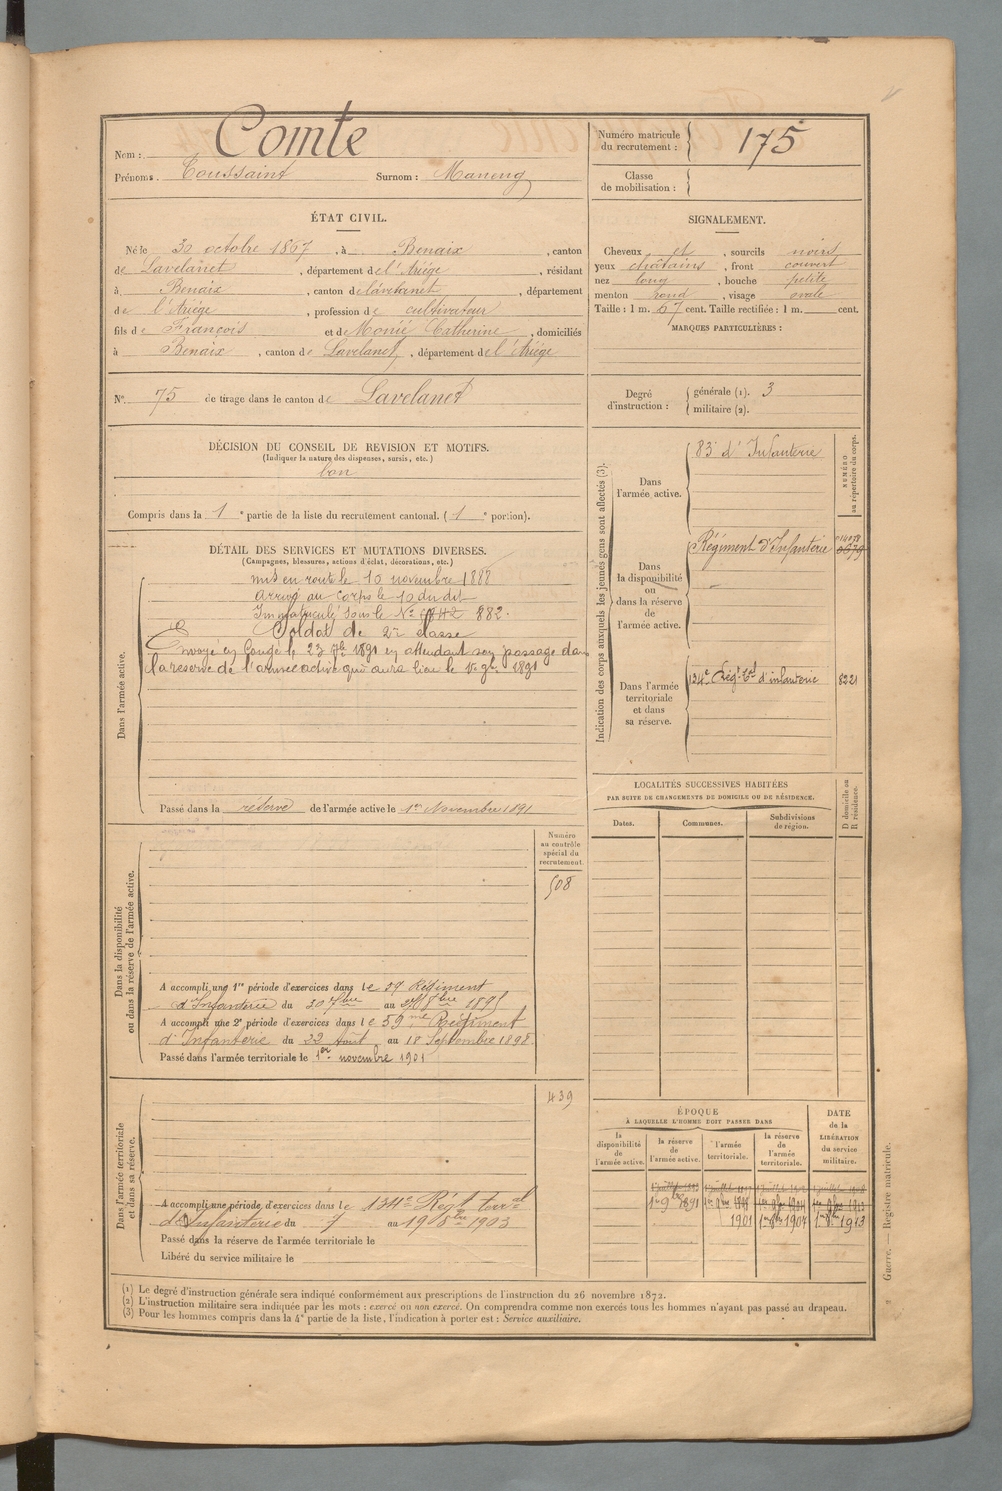 Nom : Comte
Prénoms. Toussaint Surnom : Maneng
Numéro matricule du recrutement : 175
Classe de mobilisation :
ÉTAT CIVIL.
Né le 30 octobre 1867, à Benaix, canton
de Lavelanet, département de l'Ariége, résidant
à Benaix, canton de Lavelanet, département
de l'Ariége, profession de cultivateur
fils de François et de Monié Catherine, domiciliés
à Benaix, canton de Lavelanet, département de l'Ariége
SIGNALEMENT.
Cheveux et, sourcils noirs
yeux châtains, front couvert
nez long, bouche petite
menton rond, visage ovale
Taille : 1 m. 67 cent. Taille rectifiée : 1 m. cent.
MARQUES PARTICULIÈRES :
N° 75 de tirage dans le canton de Lavelanet
Degré d'instruction : générale (1). 3
militaire (2).
DÉCISION DU CONSEIL DE REVISION ET MOTIFS.
(Indiquer la nature des dispenses, sursis, etc.)
bon
Compris dans la 1e partie de la liste du recrutement cantonal. (1e portion).
DÉTAIL DES SERVICES ET MUTATIONS DIVERSES.
(Campagnes, blessures, actions d'éclat, décorations, etc.)
Dans l'armée active.
mis en route le 10 novembre 1888
Arrivé au corps le 10 du dit
Immatriculé sous le N° 882.
Soldat de 2e classe
Envoyé en Congé le 23 7bre 1891 en attendant son passage dans
la réserve de l'armée active qui aura lieu le 1er 9bre 1891
Passé dans la réserve de l'armée active le 1er Novembre 1891
Indication des corps auxquels les jeunes gens sont affectés (3).
NUMÉRO au répertoire du corps.
Dans l'armée active.
83e d'Infanterie
Dans la disponibilité ou dans la réserve de l'armée active.
Régiment d'Infanterie
Dans l'armée territoriale et dans sa réserve.
134e Régt tal d'infanterie 8221
LOCALITÉS SUCCESSIVES HABITÉES
PAR SUITE DE CHANGEMENTS DE DOMICILE OU DE RÉSIDENCE.
D domicile ou R résidence.
Dates. Communes. Subdivisions de région.
Dans la disponibilité ou dans la réserve de l'armée active.
Numéro au contrôle spécial du recrutement.
508
A accompli une 1re période d'exercices dans le 59 Régiment
d'Infanterie du 30 7bre au 8bre 1895
A accompli une 2e période d'exercices dans le 59me Régiment
d'Infanterie du 22 Août au 18 Septembre 1898
Passé dans l'armée territoriale le 1er novembre 1901
Dans l'armée territoriale et dans sa réserve.
439
A accompli une période d'exercices dans le 134e Régt terr.al
d'Infanterie du 7 au 19 1903
Passé dans la réserve de l'armée territoriale le
Libéré du service militaire le
ÉPOQUE
À LAQUELLE L'HOMME DOIT PASSER DANS
DATE de la LIBÉRATION du service militaire.
la disponibilité de l'armée active.
la réserve de l'armée active.
l'armée territoriale.
la réserve de l'armée territoriale.
1er 9bre 1891
1901 1er 9bre 1907 1913
(1) Le degré d'instruction générale sera indiqué conformément aux prescriptions de l'instruction du 26 novembre 1872.
(2) L'instruction militaire sera indiquée par les mots : exercé ou non exercé. On comprendra comme non exercés tous les hommes n'ayant pas passé au drapeau.
(3) Pour les hommes compris dans la 4e partie de la liste, l'indication à porter est : Service auxiliaire.
Guerre. — Registre matricule.